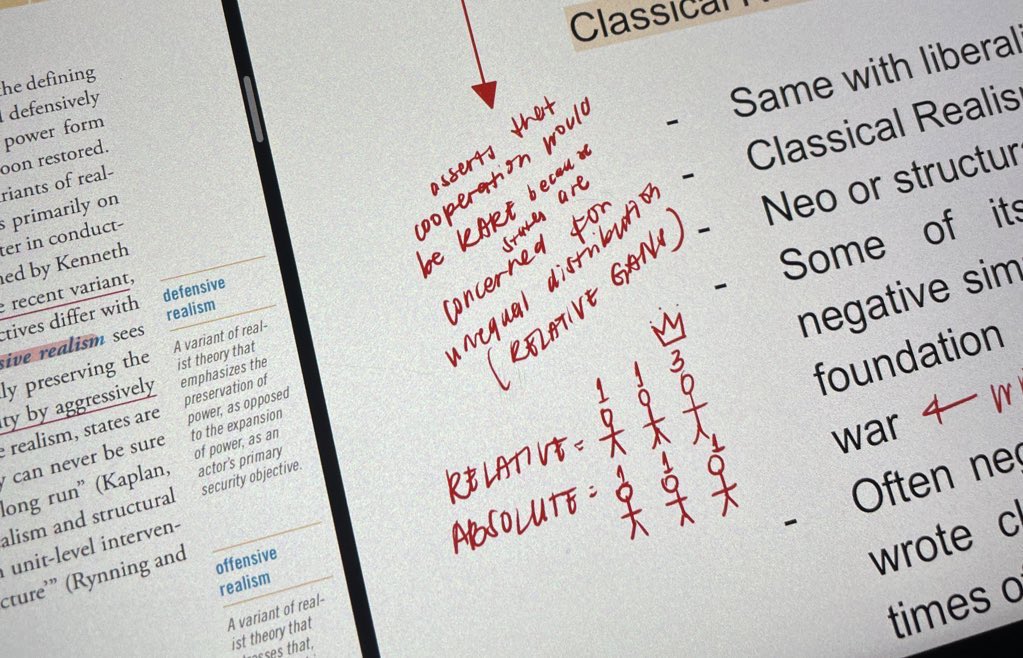 the defining
defensively
power form
oon restored.
riants of real-
s primarily on
ter in conduct-
ned by Kenneth
e recent variant,
ctives differ with
sive realism sees
ly preserving the
ty by aggressively
e realism, states are
y can never be sure
long run” (Kaplan,
alism and structural
unit-level interven-
cture’” (Rynning and
defensive
realism
A variant of real-
ist theory that
emphasizes the
preservation of
power, as opposed
to the expansion
of power, as an
actor’s primary
security objective.
offensive
realism
A variant of real-
ist theory that
sses that,
asserts that
cooperation would
be RARE because
states are
concerned for
unequal distribution
(RELATIVE GAINS)
1 1 3
RELATIVE =
1 1 1
ABSOLUTE =
Classical
- Same with liberali
- Classical Realis
- Neo or structur
- Some of its
negative sim
foundation
war ←
- Often neg
wrote cl
times o